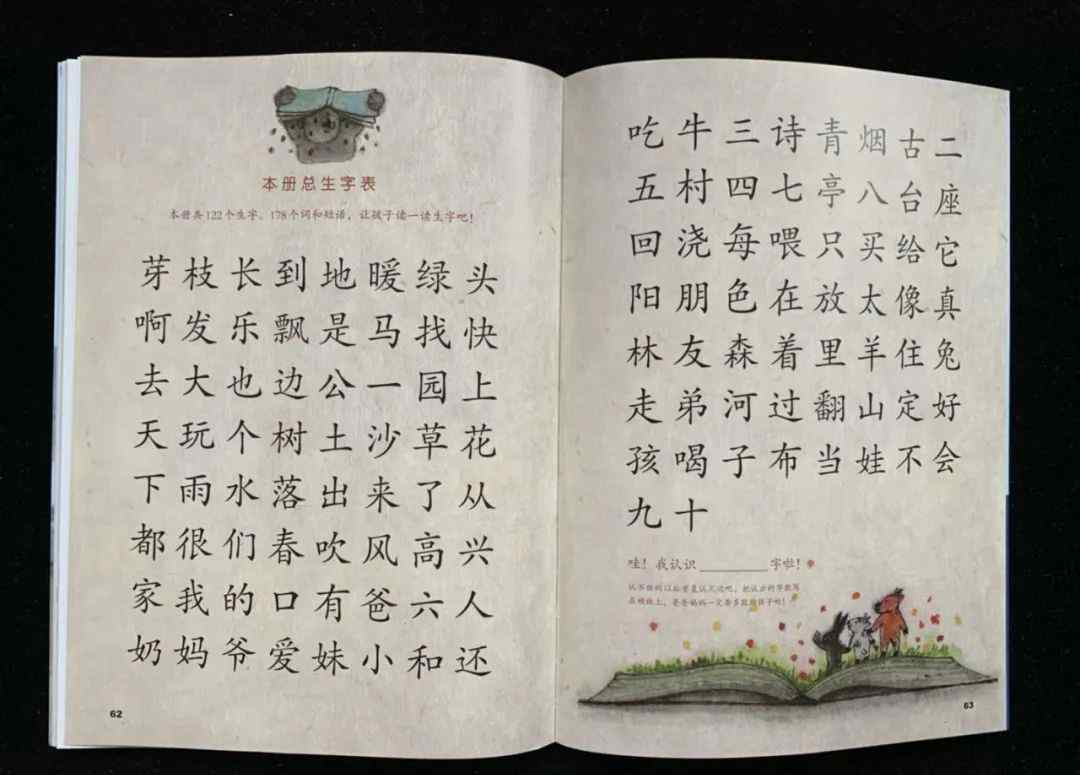 本册总生字表
本册共122个生字、178个词和短语，让孩子读一读生字吧！
芽枝长到地暖绿头
啊发乐飘是马找快
去大也边公一园上
天玩个树土沙草花
下雨水落出来了从
都很们春吹风高兴
家我的口有爸六人
奶妈爷爱妹小和还
62
吃牛三诗青烟古二
五村四七亭八台座
回浇每喂只买给它
阳朋色在放太像真
林友森着里羊住兔
走弟河过翻山定好
孩喝子布当娃不会
九十
哇！我认识________字啦！
63